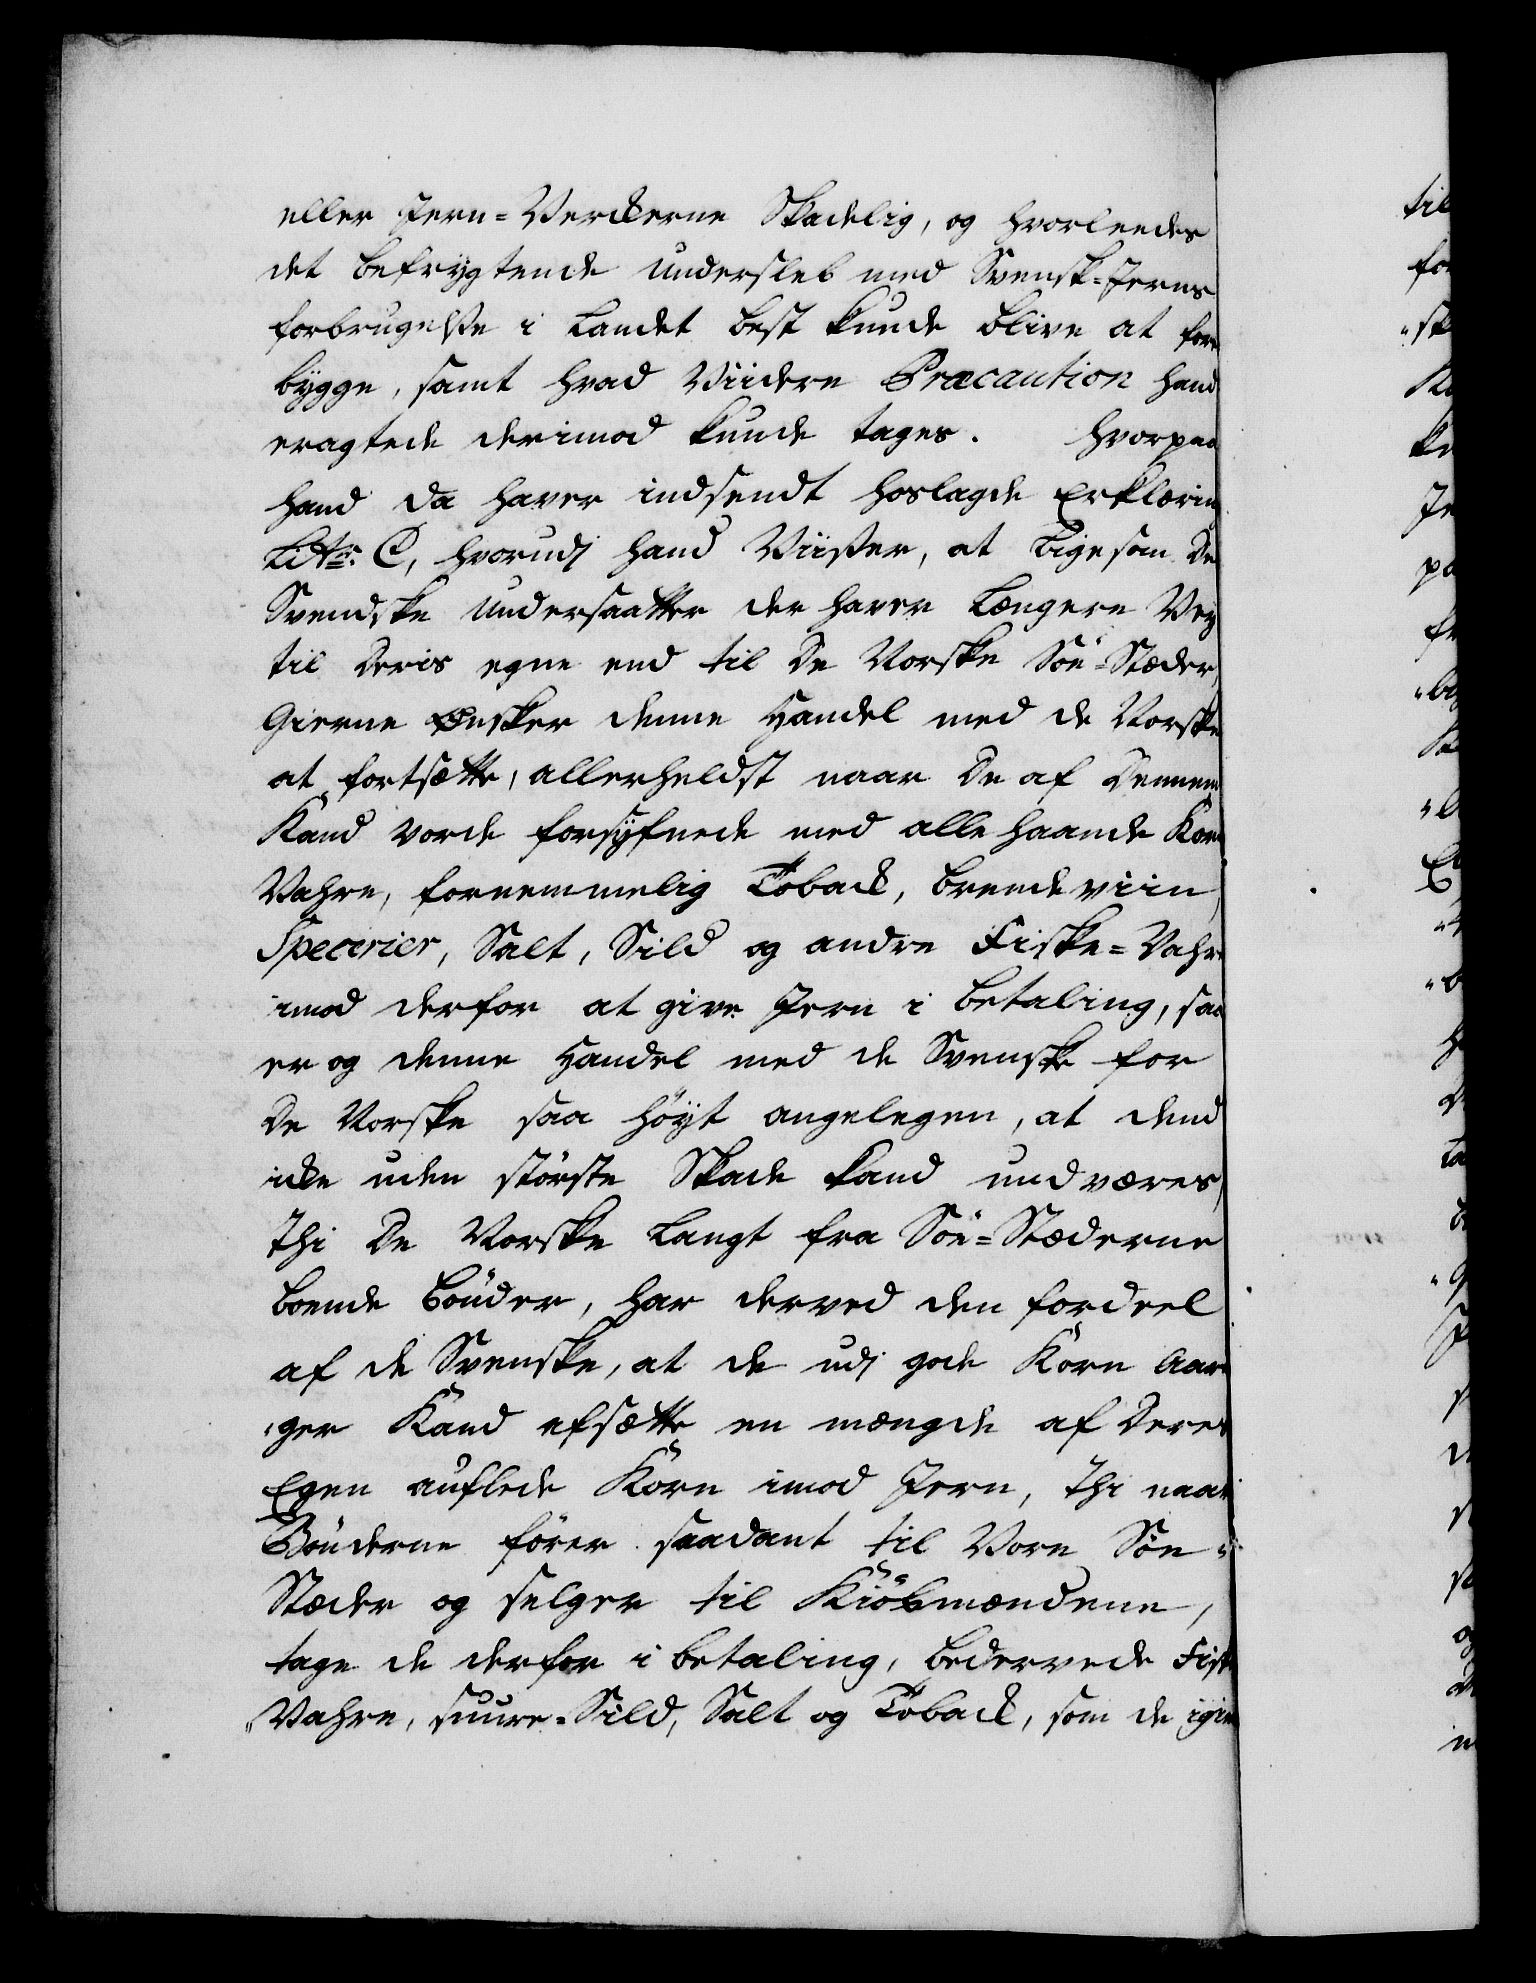 eller Jern-Verckerne Skadelig, og hvorleedes
det befrygtende undersleb med Svensk-Jerns
forbrugelse i Landet best kunde blive at fore
bygge, samt hvad Viidere Præcaution hand
eragtede derimod kunde tages. hvorpaa
hand da haver indsendt hoslagde Erklæring
Litr: C, hvorudj hand Viiser, at ligesom De
Svendske undersaatter der haver Længere Vey
til deris egne end til De Norske Söe-Stæder,
Gierne Ønsker denne Handel med de Norske
at fortsætte, allerheldst naar De af Dennem
Kand vorde forsyfnede med alle haande Kram
Vahre, fornemmelig Toback, brendeviin,
Specerier, Salt, Sild og andre Fiske-Vahre
imod derfor at give Jern i betaling, saa
er og denne Handel med de Svenske for
De Norske saa höyt angelegen, at dend
icke uden störste Skade kand undværes,
thi De Norske Langt fra Söe-Stæderne
boende Bönder, har derved den fordeel
af de Svenske, at de udj gode Korn Aarin
ger Kand afsætte en mængde af Deres
Egen auflede Korn imod Jern, thi naar
Bönderne förer saadant til Vore Söe-
Stæder og selger til Kiöbmændene,
tage de derfor i betaling, bedervede Fiske
Vahre, suure-Sild, Salt og Toback, som de igien